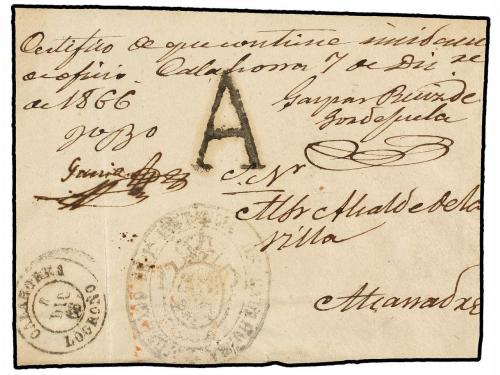 Certifico de que contiene
de oficio. Calahorra 7 de Dic.re
de 1866
Gaspar Ruiz de
Gordejuela
V.o B.o
Garcia
A
S. N.
Al Sr Alcalde de la
Villa
Alcanadre
CALAHORRA
DIC
66
LOGROÑO